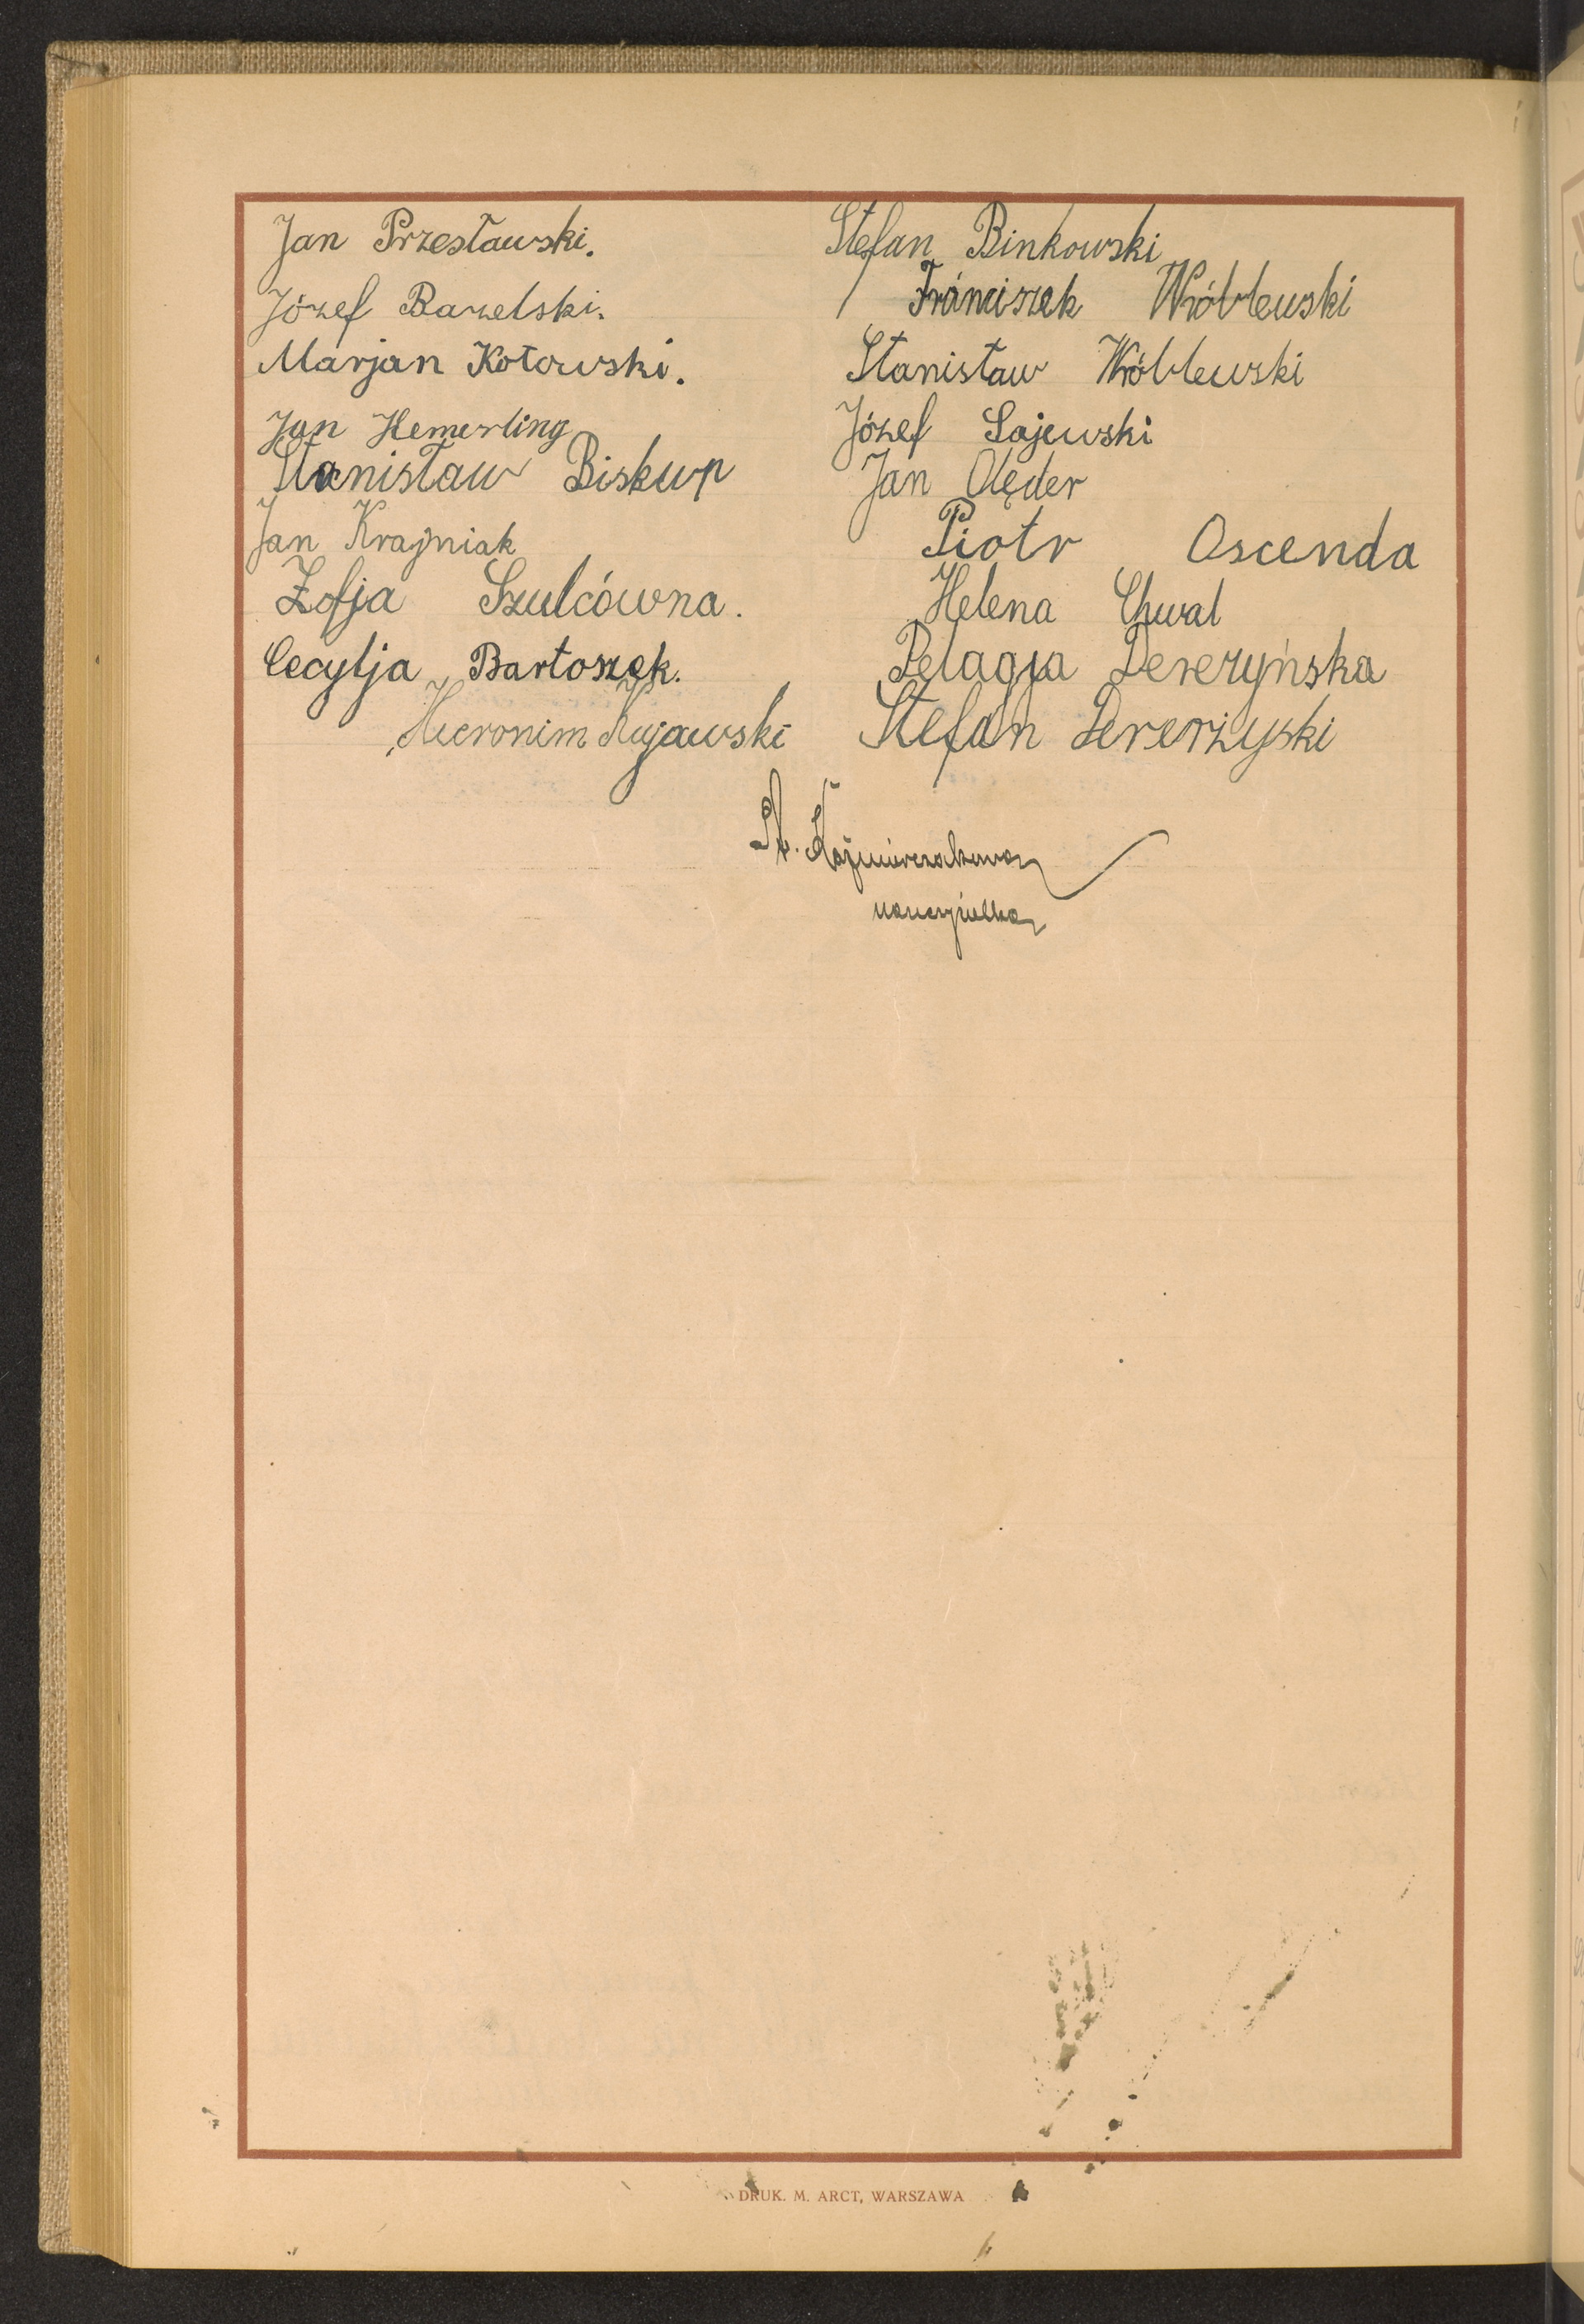 Jan Przesławski.
Józef Bazelski.
Marjan Kotowski.
Jan Hemerling
Stanisław Biskup
Jan Krajniak
Zofja Szulcówna.
Cecylja Bartoszek.
Hieronim Kujawski
Stefan Binkowski
Franciszek Wróblewski
Stanisław Wróblewski
Józef Gajewski
Jan Olęder
Piotr Oscenda
Helena Chwal
Pelagja Dereżyńska
Stefan
St. Kaźmierczakowa
nauczycielka
DRUK. M. ARCT, WARSZAWA